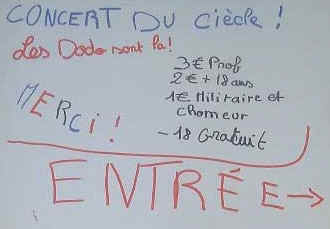 CONCERT DU CièCle !
Les Dodo sont là !
3€ Prof
2€ + 18 ans
1€ Militaire et
chomeur
- 18 Gratuit
MERCi !
ENTRÉE →